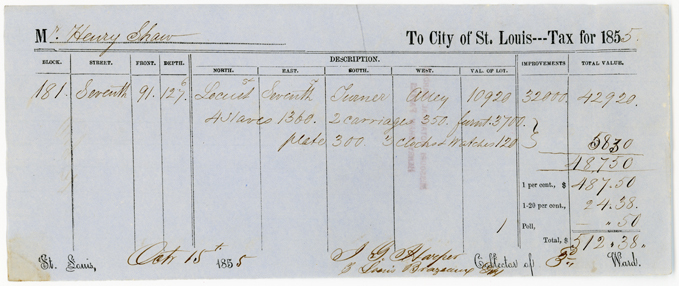 Mr. Henry Shaw To City of St. Louis---Tax for 1855.
DESCRIPTION.
BLOCK. STREET. FRONT. DEPTH. NORTH. EAST. SOUTH. WEST. VAL. OF LOT. IMPROVEMENTS TOTAL VALUE.
181. Seventh 91. 127.6 Locust st Seventh Alley 10920 32000. 42920.
4 Slaves 1360. 2 carriages 350. furnt. 3700.
plate 300 3 clocks & Watches 120 5830
48,750
1 per cent., $ 487.50
1-20 per cent., 24.38.
Poll, 1 " 50
Total, $ 512.38.
St. Louis, Oct 15th 1855 Collector of 3d Ward.